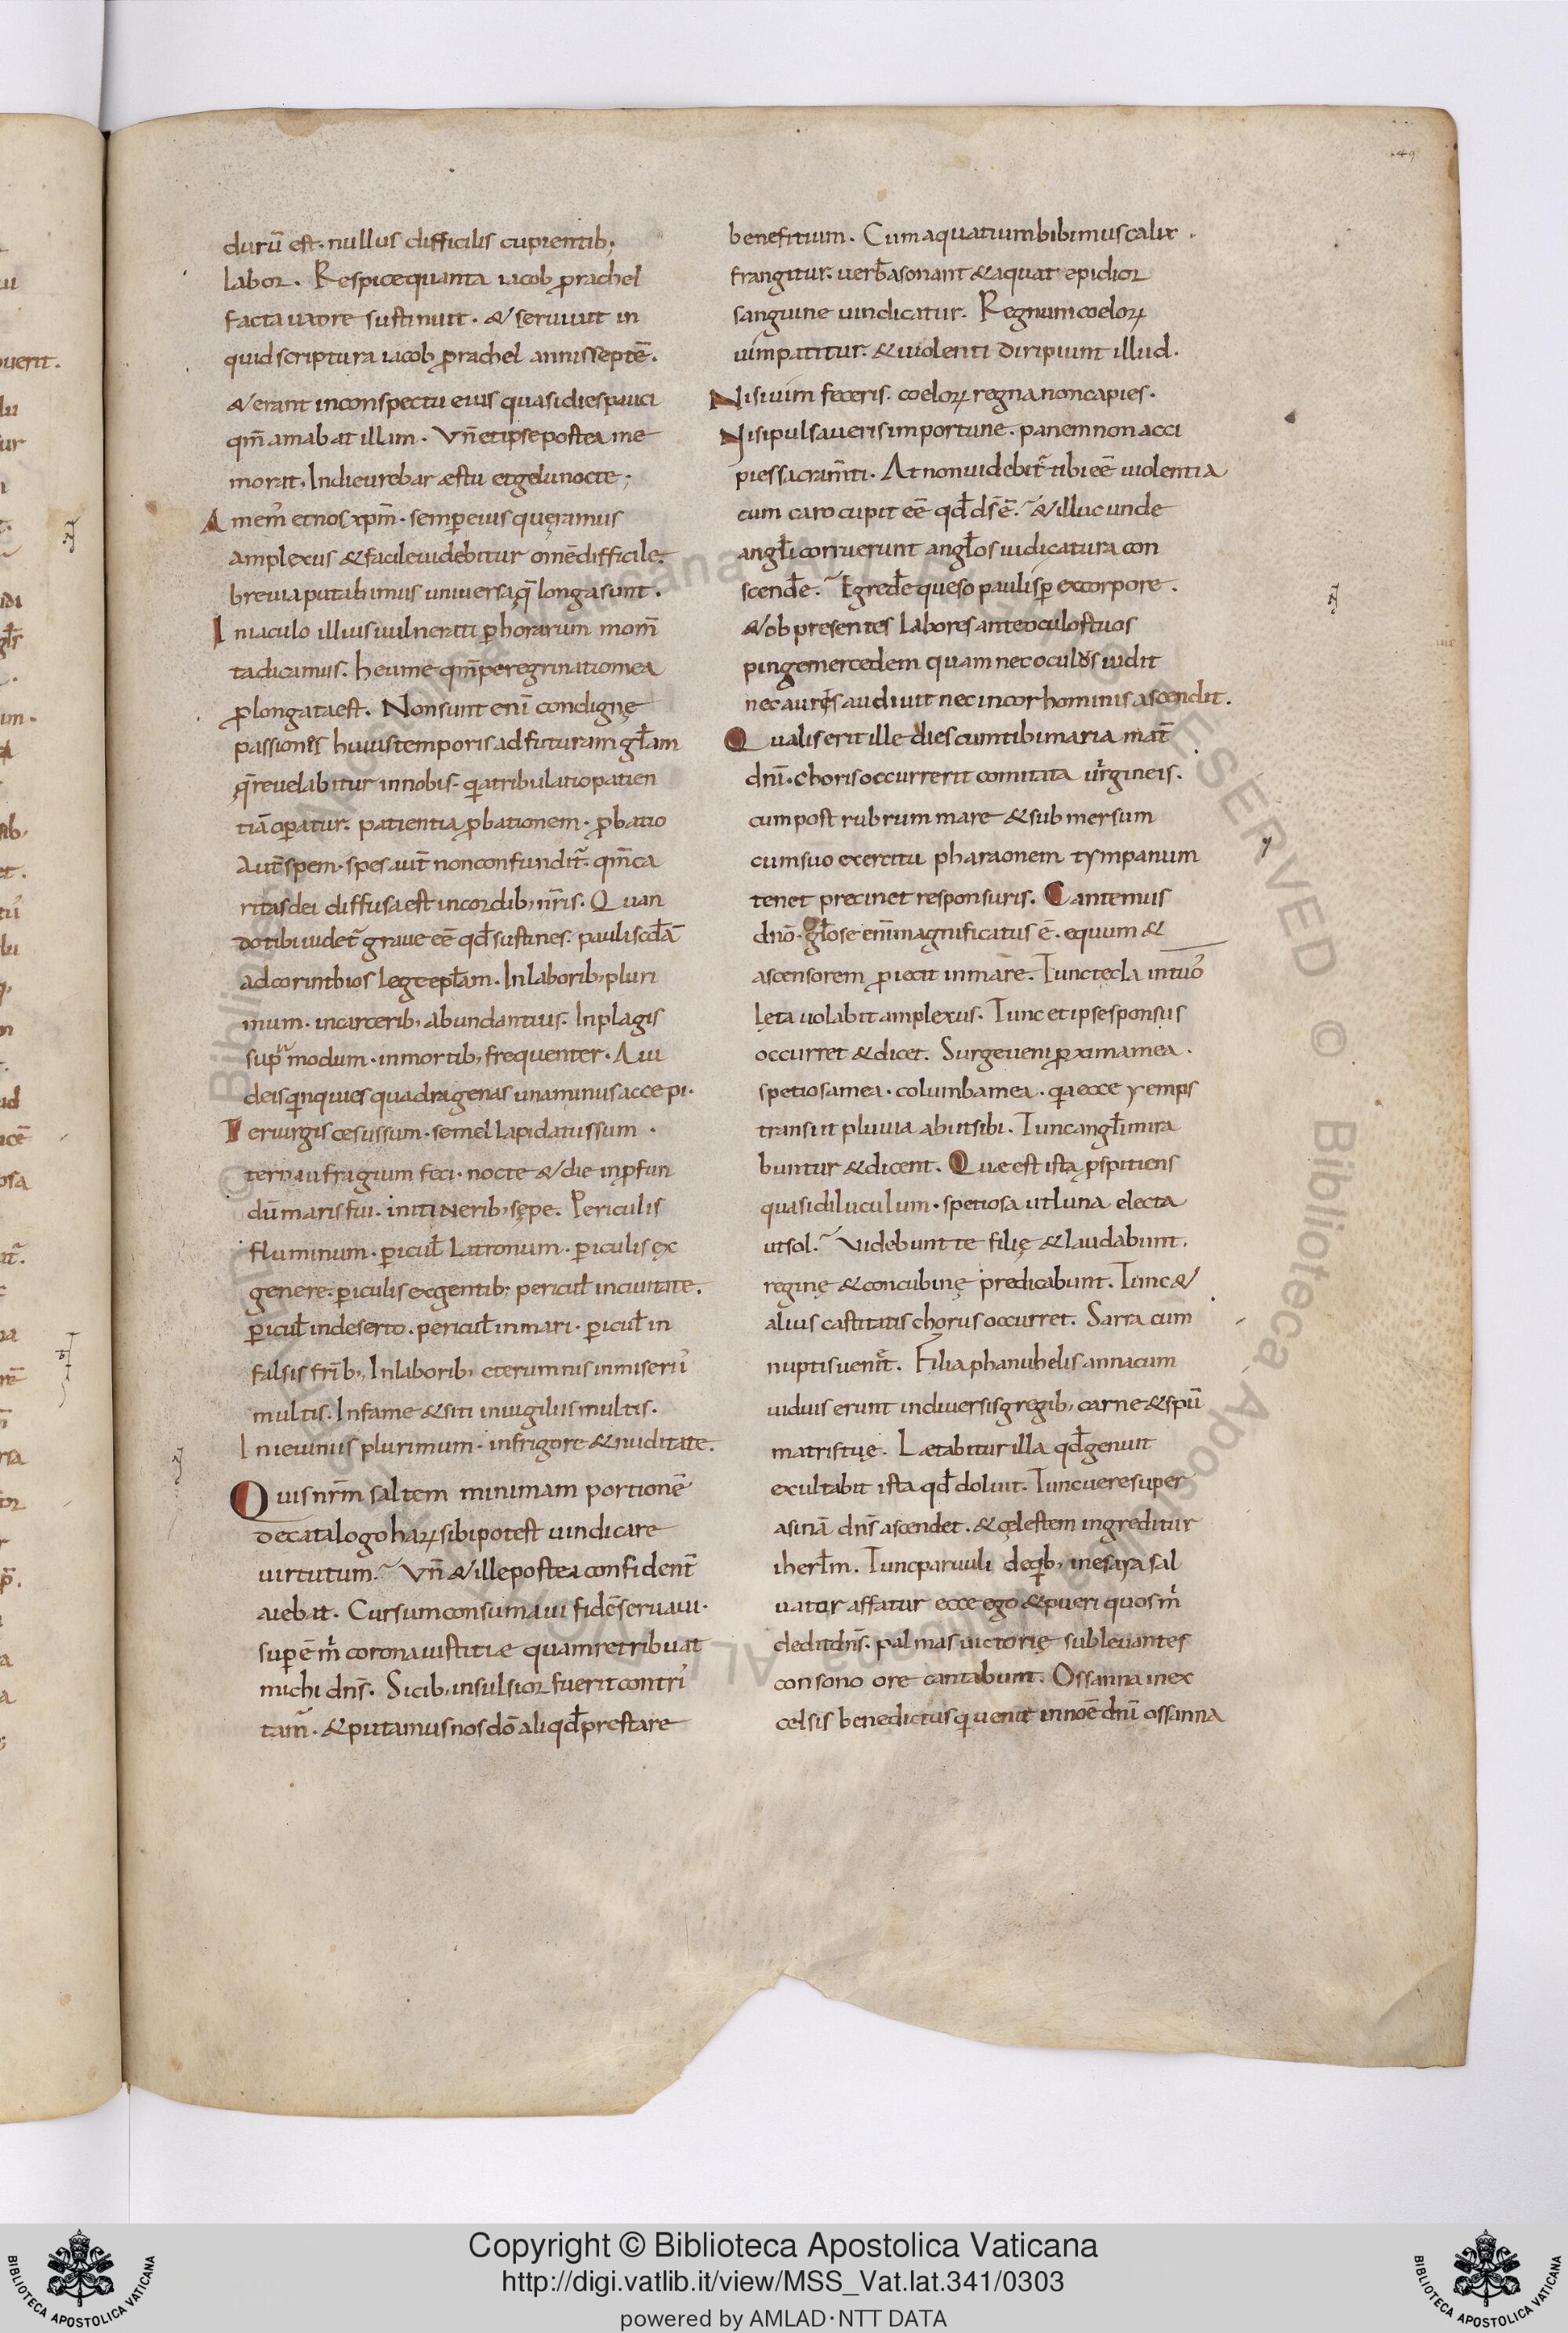 149
durū est. nullus difficilis cupientib;
labor. Respice quanta iacob ꝓ rachel
facta uxore sustinuit. & seruiuit in
quid scriptura iacob ꝓ rachel annis septē.
& erant in conspectu eius quasi dies pauci
qm̄ amabat illam. Vn̄ et ipse postea me
morat. In die urebar æstu et gelu nocte;
Amem᾽ et nos xp̄m. semꝑ eius quęramus
amplexus & facile uidebitur om̄e difficile.
breuia putabimus uniuersa q̄ longa sunt.
Iniaculo illius uulnerati ꝑ horarum mom̄
ta dicamus. heu me qm̄ peregrinatio mea
ꝓlongata est. Non sunt eni condignę
passiones huius temporis ad futuram gl̄am
q̄ reuelabitur in nobis. qa tribulatio patien
tiā oꝑatur. patientia ꝓbationem. ꝓbatio
autē spem. spes aut̄ non confundit᷑. qm̄ ca
ritas dei diffusa est in cordib; nr̄is. Quan
do tibi uidet᷑ graue eē qd̄ sustines. pauli scd̄ā
ad corinthios lege epl̄am. In laborib; pluri
mum. in carcerib; abundantius. In plagis
supra modum. in mortib; frequenter. A iu
deis quinquies quadragenas una minus accepi.
Ter uirgis cesus sum. semel lapidatus sum.
ter naufragium feci. nocte & die in ꝓfun
dū maris fui. in itinerib; sępe. Periculis
fluminum. ꝑicul̄ latronum. ꝑiculis ex
genere. ꝑiculis ex gentib; pericul̄ in ciuitate.
ꝑicul̄ in deserto. pericul̄ in mari. ꝑicul̄ in
falsis frīb;. In laborib; eterumnis in miserii᾽
multis. In fame & siti in uigiliis multis.
In ieiuniis plurimum. in frigore & nuditate.
Quis nr̄m saltem minimam portionē
de catalogo haꝝ sibi potest uindicare
uirtutum. Vn̄ & ille postea confident̄
aiebat. Cursum consumaui fidē seruaui.
supē m̄ corona iustitiæ quam retribuat
michi dn̄s. Si cib; insulsior fuerit contri᾽
tam᷑. & putamus nos dō aliqd̄ prestare
benefitium. Cum aquatium bibimus calix.
frangitur. uerb̄a sonant & aquat epidior
sanguine uindicatur. Regnum coeloꝝ
uim patitur. & uiolenti diripiunt illud.
Nisi uim feceris. coeloꝝ regna non capies.
Nisi pulsaueris importune. panem non acci
pies sacram̄ti. At non uidebit᷑ tibi eē uiolentia
cum caro cupit eē qd̄ ds̄ ē. & illuc unde
angl̄i corruerunt angl̄os iudicatura con
scend̄e. Egred̄e queso paulisꝑ ex corpore.
& ob presentes labores ante oculos tuos
pinge mercedem quam nec oculus uidit
nec aures audiuit nec in cor hominis ascendit.
Qualis erit ille dies cum tibi maria mat̄
dn̄i. choris occurrerit comitata uirgineis.
cum post rubrum mare & submersum
cum suo exercitu pharaonem tympanum
tenet precinet responsuris. Cantemus
dn̄o. gl̄ose enī magnificatus ē. equum &
ascensorem ꝓiecit in mare. Tunc tecla in tuo᾽
lęta uolabit amplexus. Tunc et ipse sponsus
occurret & dicet. Surge ueni ꝓxima mea.
spetiosa mea. columba mea. qa ecce yemps
transiit pluuia abiit sibi. Tunc angl̄i mira
buntur & dicent. Quæ est ista ꝓspitiens
quasi diluculum. spetiosa ut luna electa
ut sol. Videbunt te filię & laudabunt.
reginę & concubinę predicabunt. Tunc &
alius castitatis chorus occurret. Sarra cum
nuptis ueniet. Filia phanuhelis anna cum
uiduis erunt in diuersis gregib; carne & spū
matris tuę. Lætabitur illa qd̄ genuit
exultabit ista qd̄ doluit. Tunc uere super
asinā dn̄s ascendet. & cęlestem ingreditur
iherl̄m. Tunc paruuli de qb; in esaya sal
uator affatur ecce ego & pueri quos m̄
dedit dn̄s. palmas uictorię subleuantes
consono ore cantabunt. Ossanna in ex
celsis benedictus qui uenit in noē dn̄i ossanna
© Biblioteca Apostolica Vaticana ALL RIGHTS RESERVED
Copyright © Biblioteca Apostolica Vaticana
http://digi.vatlib.it/view/MSS_Vat.lat.341/0303
powered by AMLAD·NTT DATA
BIBLIOTECA APOSTOLICA VATICANA
BIBLIOTECA APOSTOLICA VATICANA